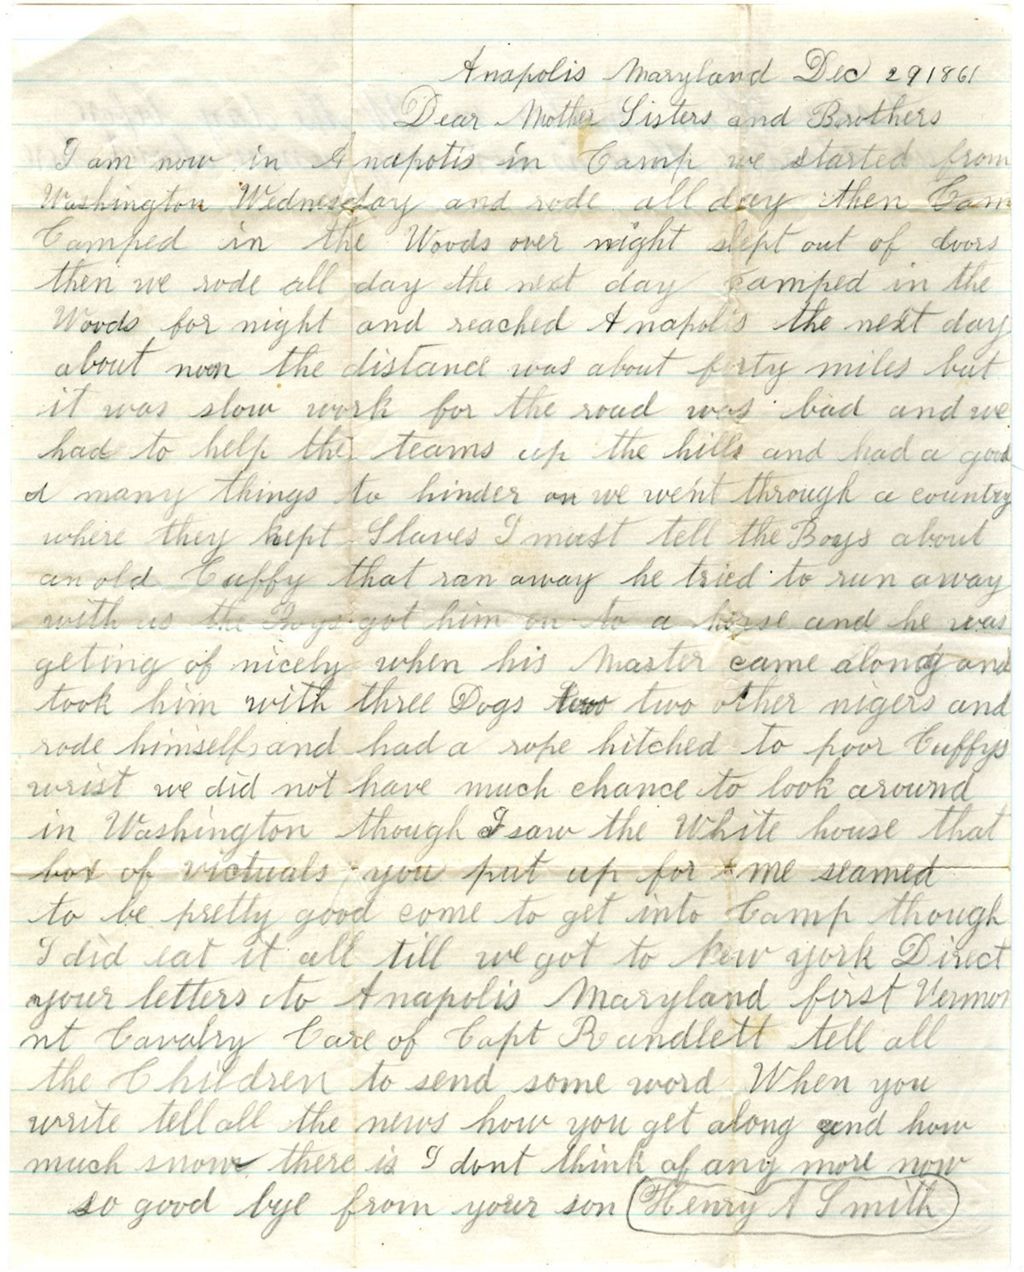 Anapolis Maryland Dec 29 1861
Dear Mother Sisters and Brothers
I am now in Anapolis in Camp we started from
Washington Wednesday and rode all day then Cam
Camped in the Woods over night slept out of doors
then we rode all day the next day camped in the
Woods for night and reached Anapolis the next day
about noon the distance was about forty miles but
it was slow work for the road was bad and we
had to help the teams up the hills and had a good
many things to hinder on we went through a country
where they kept Slaves I must tell the Boys about
an old Cuffy that ran away he tried to run away
with us the Boys got him on to a horse and he was
geting of nicely when his Master came along and
took him with three Dogs two two other nigers and
rode himself and had a rope hitched to poor Cuffys
wrist we did not have much chance to look around
in Washington though I saw the White house that
box of victuals you put up for me seamed
to be pretty good come to get into Camp though
I did eat it all till we got to New york Direct
your letters to Anapolis Maryland first Vermo
nt Cavalry Care of Capt Rundlett tell all
the Children to send some word When you
write tell all the news how you get along and how
much snow there is I dont think of any more now
so good bye from your son Henry A Smith